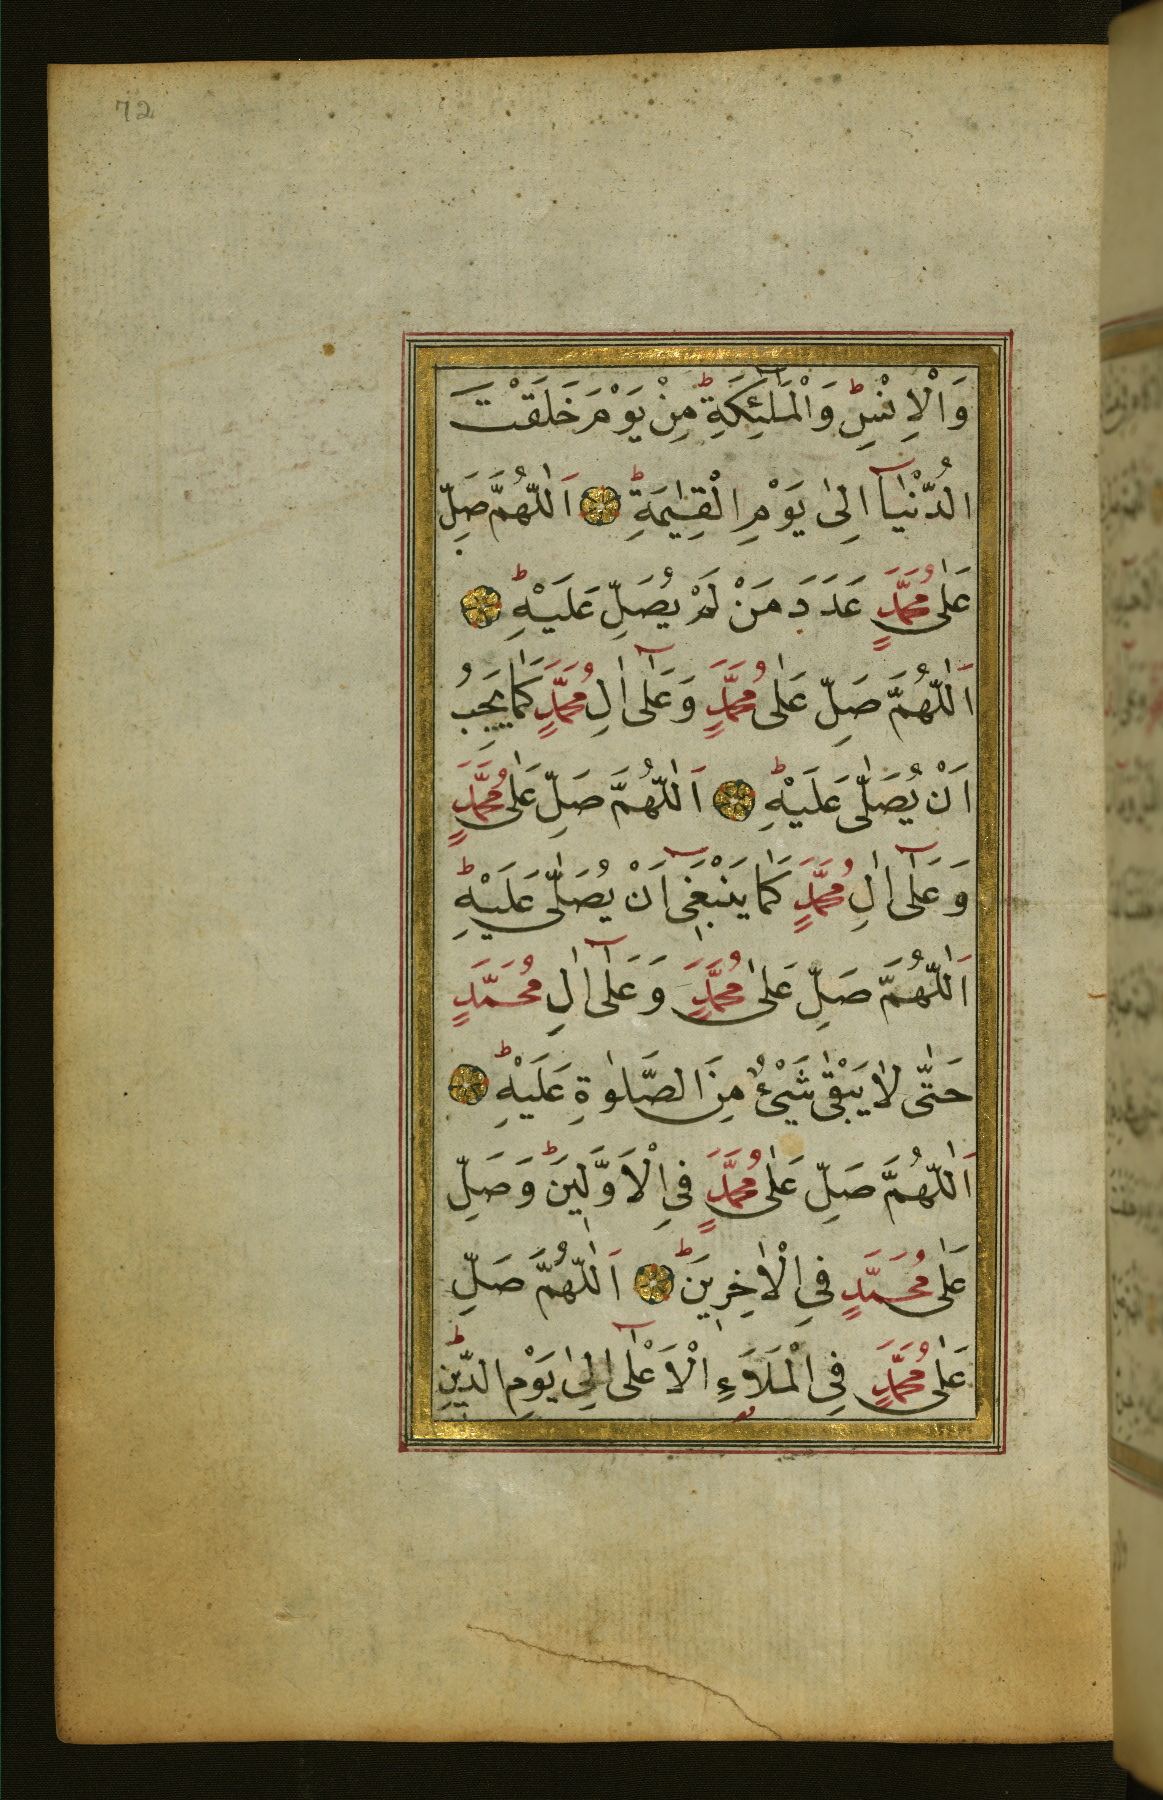 72
وَالْاِنْسِ وَالْمَلٰٓئِكَةِ مِنْ يَوْمَ خَلَقْتَ
الدُّنْيَآ اِلٰى يَوْمِ الْقِيٰمَةِ اَللّٰهُمَّ صَلِّ
عَلٰى مُحَمَّدٍ عَدَدَ مَنْ لَمْ يُصَلِّ عَلَيْهِ
اَللّٰهُمَّ صَلِّ عَلٰى مُحَمَّدٍ وَعَلٰٓى اٰلِ مُحَمَّدٍ كَمَا يَجِبُ
اَنْ يُصَلّٰى عَلَيْهِ اَللّٰهُمَّ صَلِّ عَلٰى مُحَمَّدٍ
وَعَلٰٓى اٰلِ مُحَمَّدٍ كَمَا يَنْبَغِىٓ اَنْ يُصَلّٰى عَلَيْهِ
اَللّٰهُمَّ صَلِّ عَلٰى مُحَمَّدٍ وَعَلٰٓى اٰلِ مُحَمَّدٍ
حَتّٰى لَا يَبْقٰى شَىْءٌ مِنَ الصَّلٰوةِ عَلَيْهِ
اَللّٰهُمَّ صَلِّ عَلٰى مُحَمَّدٍ فِى الْاَوَّلِينَ وَصَلِّ
عَلٰى مُحَمَّدٍ فِى الْاٰخِرِينَ اَللّٰهُمَّ صَلِّ
عَلٰى مُحَمَّدٍ فِى الْمَلَاءِ الْاَعْلٰٓى اِلٰى يَوْمِ الدِّينِ